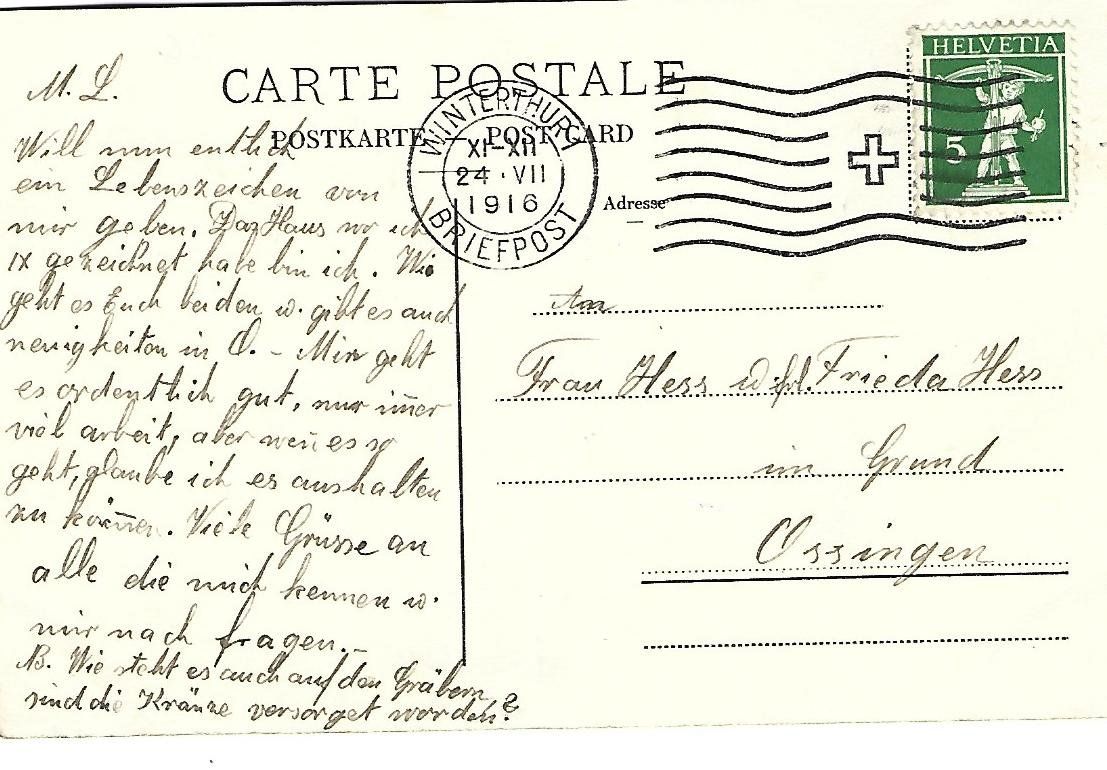 CARTE POSTALE
POSTKARTE — POST CARD
WINTERTHUR 1
XI-XII
24 · VII
1916
BRIEFPOST
HELVETIA
5
Adresse
M. L.
Will nun entlich
ein Lebenszeichen von
mir geben. Das Haus wo ich
IX gezeichnet habe bin ich. Wie
geht es Euch beiden u. gibt es auch
neuigkeiten in O. – Mir geht
es ordentlich gut, nur im̄er
viel arbeit, aber wen̄ es so
geht, glaube ich es aushalten
zu kön̄en. Viele Grüsse an
alle die mich kennen u.
mir nach fragen. –
NB. Wie steht es auch auf den Gräbern
sind die Kränze versorget worden?
An
Frau Hess u. frl. Frieda Hess
im Grund
Ossingen